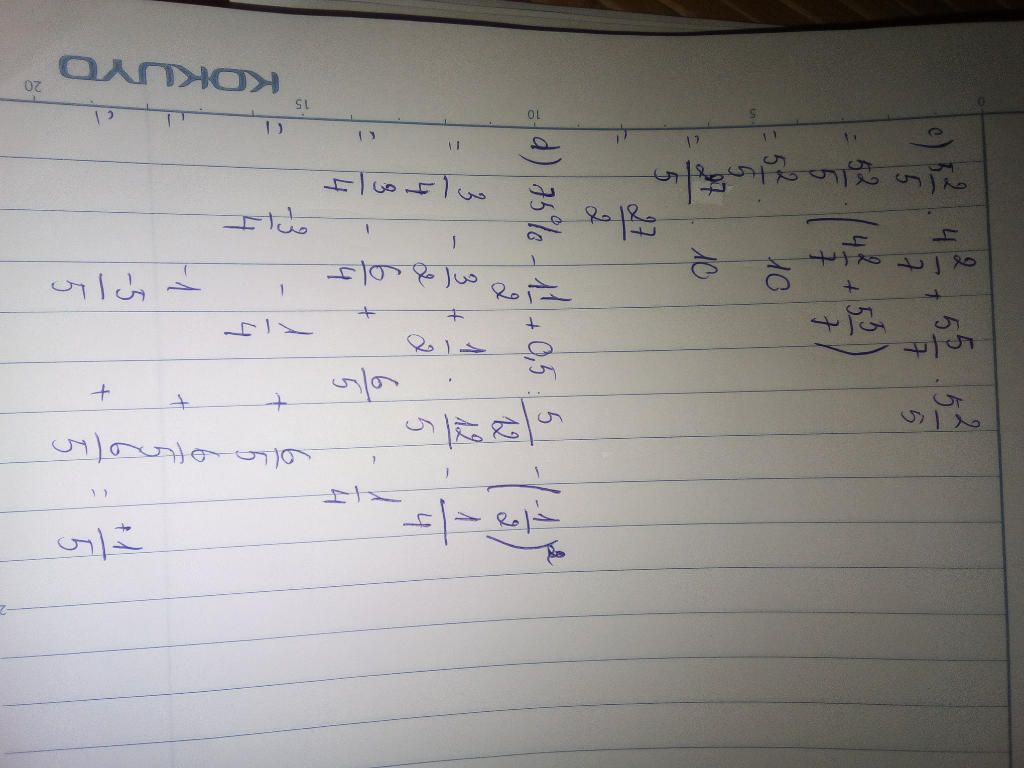 KOKUYO
0 5 10 15 20
c) 5 2/5 . 4 2/7 + 5 5/7 . 5 2/5
= 5 2/5 . ( 4 2/7 + 5 5/7 )
= 5 2/5 . 10
= 27/5 . 10
= 27/2
d) 75% - 1 1/2 + 0,5 : 5/12 - ( -1/2 )²
= 3/4 - 3/2 + 1/2 . 12/5 - 1/4
= 3/4 - 6/4 + 6/5 - 1/4
= -3/4 - 1/4 + 6/5
= -1 + 6/5
= -5/5 + 6/5 = 1/5